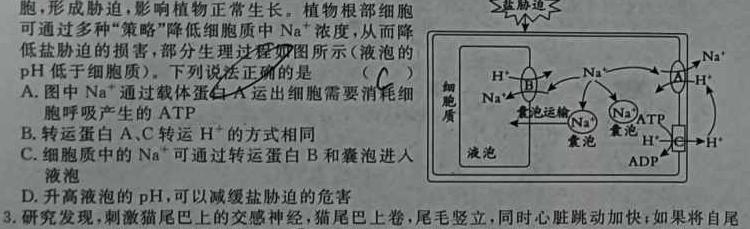 胞,形成胁迫,影响植物正常生长。植物根部细胞
可通过多种“策略”降低细胞质中 Na⁺ 浓度,从而降
低盐胁迫的损害,部分生理过程如图所示(液泡的
pH 低于细胞质)。下列说法正确的是 ( C )
A. 图中 Na⁺ 通过载体蛋白 A 运出细胞需要消耗细
胞呼吸产生的 ATP
B. 转运蛋白 A、C 转运 H⁺ 的方式相同
C. 细胞质中的 Na⁺ 可通过转运蛋白 B 和囊泡进入
液泡
D. 升高液泡的 pH,可以减缓盐胁迫的危害
3. 研究发现,刺激猫尾巴上的交感神经,猫尾巴上卷,尾毛竖立,同时心脏跳动加快;如果将自尾
盐胁迫
细胞质
H⁺
Na⁺
B
Na⁺
A
Na⁺
H⁺
囊泡运输
Na⁺
囊泡
Na⁺
囊泡
ATP
H⁺
C
H⁺
ADP
液泡